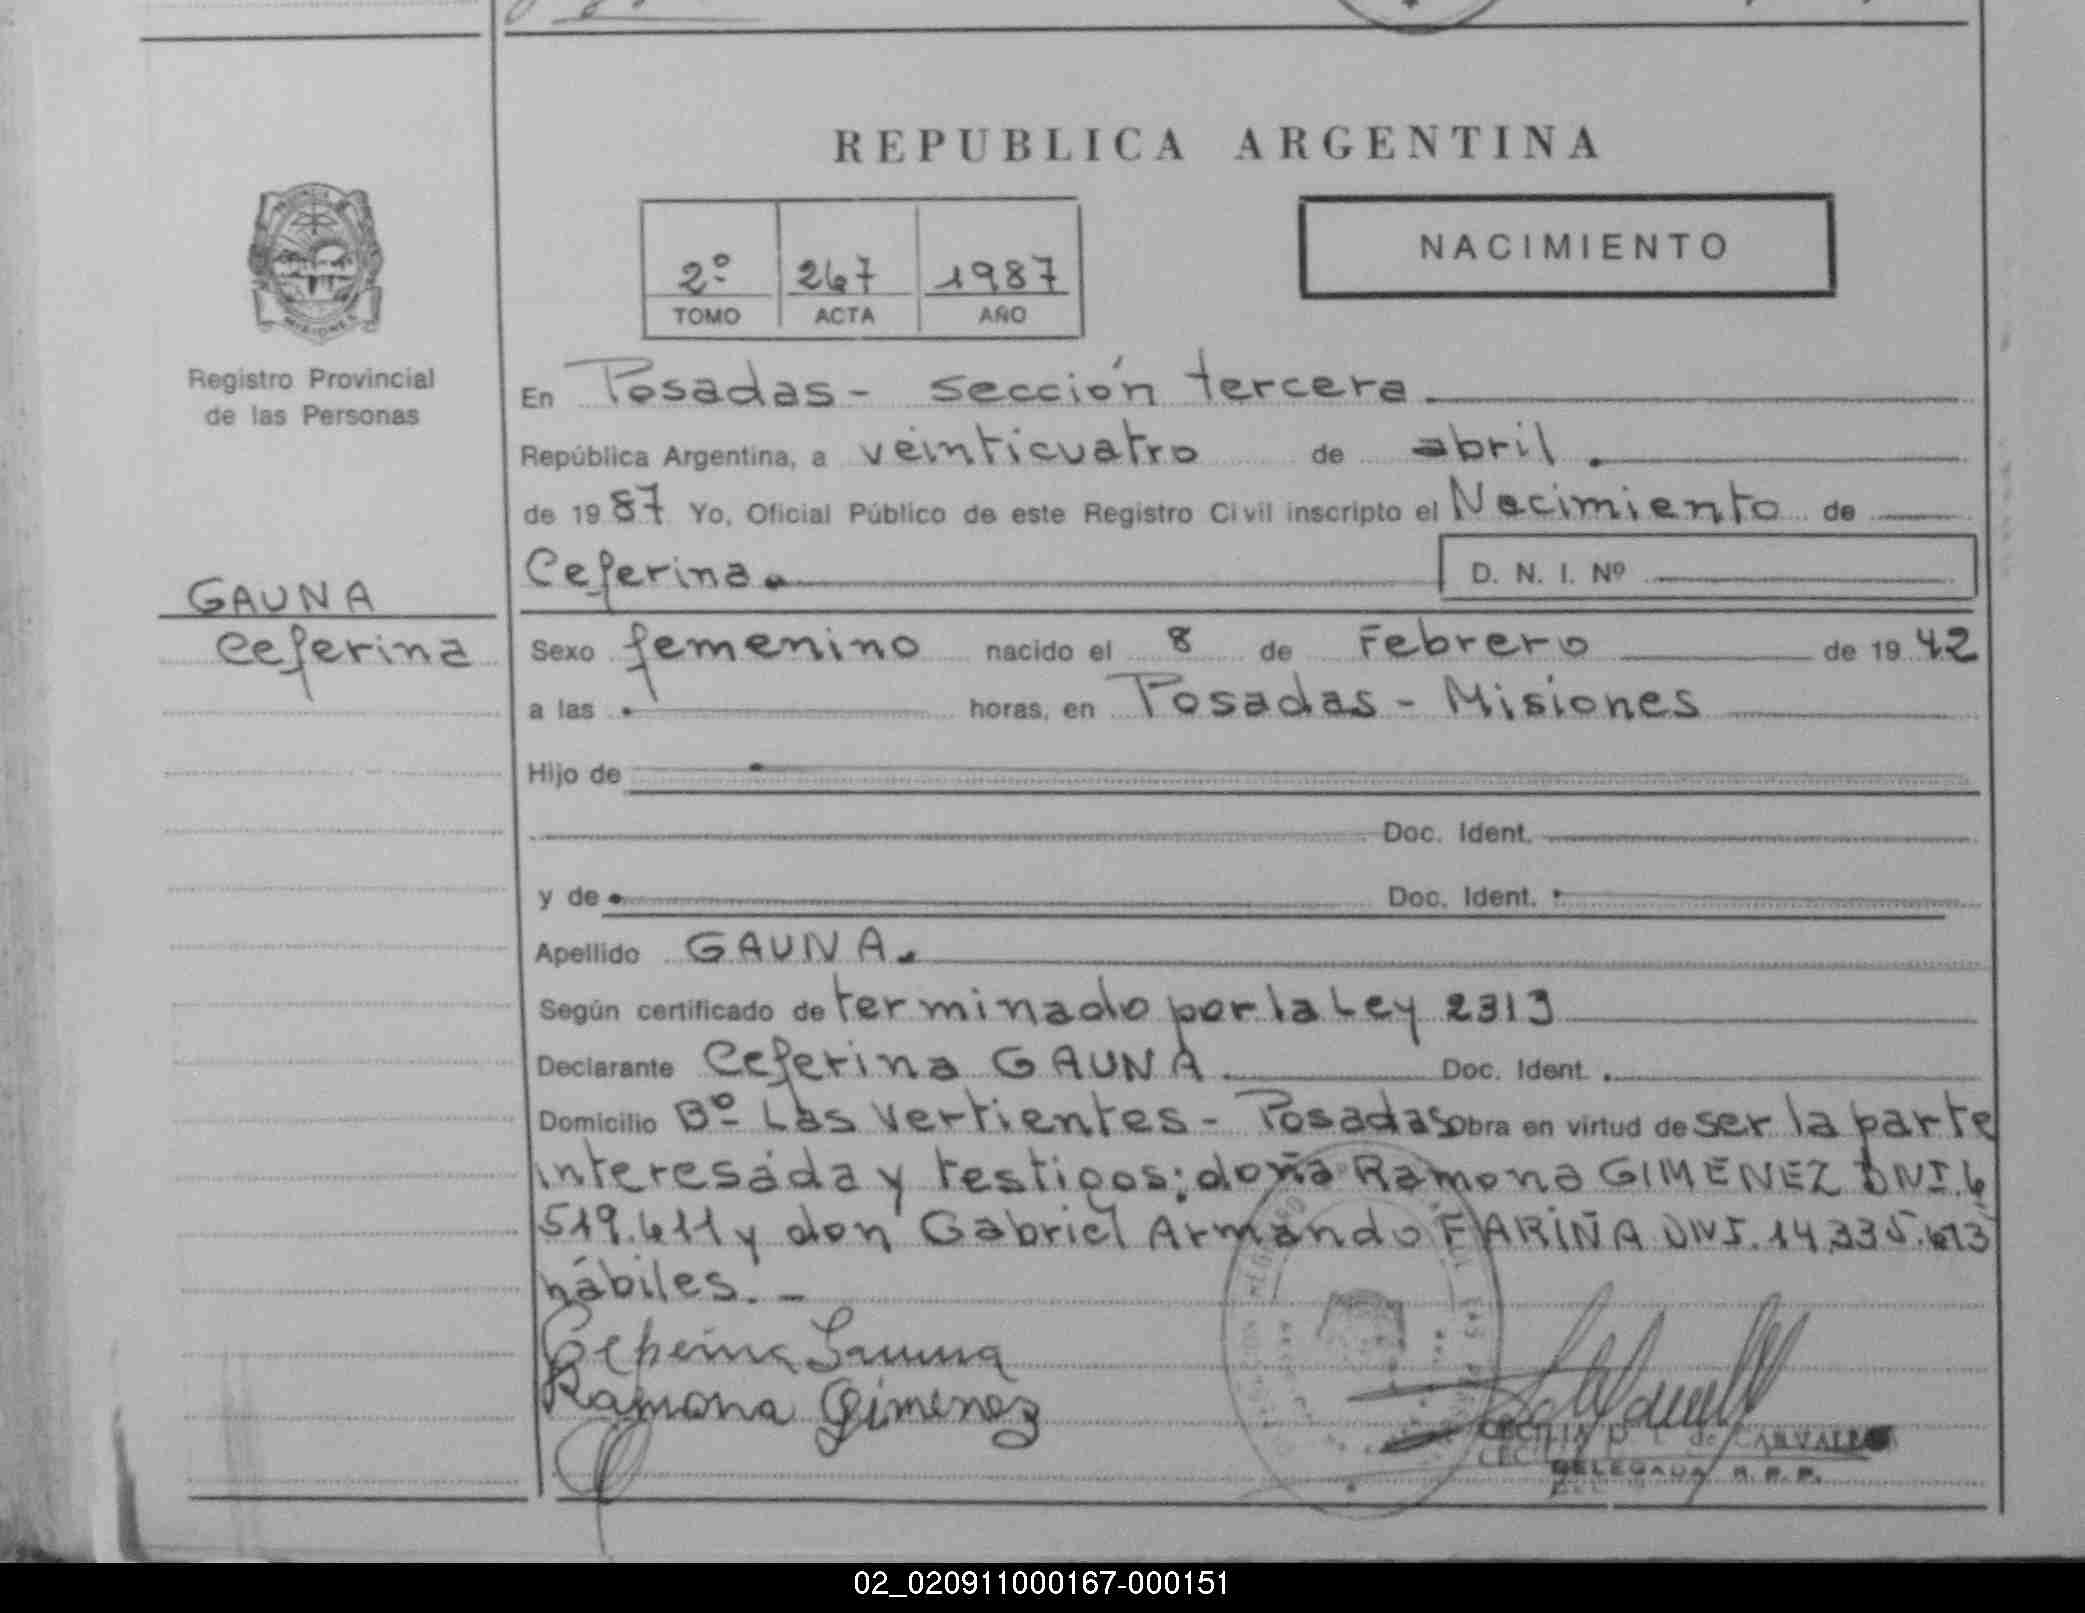 REPUBLICA ARGENTINA
2º 267 1987
TOMO ACTA AÑO
NACIMIENTO
MISIONES
Registro Provincial
de las Personas
GAUNA
Ceferina
En Posadas - sección tercera
República Argentina, a veinticuatro de abril.
de 1987 Yo, Oficial Público de este Registro Civil inscripto el Nacimiento de
Ceferina. D. N. I. Nº
Sexo femenino nacido el 8 de Febrero de 1942
a las horas, en Posadas - Misiones
Hijo de
Doc. Ident.
y de Doc. Ident.
Apellido GAUNA.
Según certificado de terminado por la Ley 2313
Declarante Ceferina GAUNA. Doc. Ident.
Domicilio Bº Las Vertientes - Posadas obra en virtud de ser la parte
interesada y testigos: doña Ramona GIMENEZ DNI. 6
519.611 y don Gabriel Armando FARIÑA DNI. 14.335.
hábiles. -
Ceferina Gauna
Ramona Gimenez
CECILIA de CARVALHO
DELEGADA R. P. P.
02_020911000167-000151